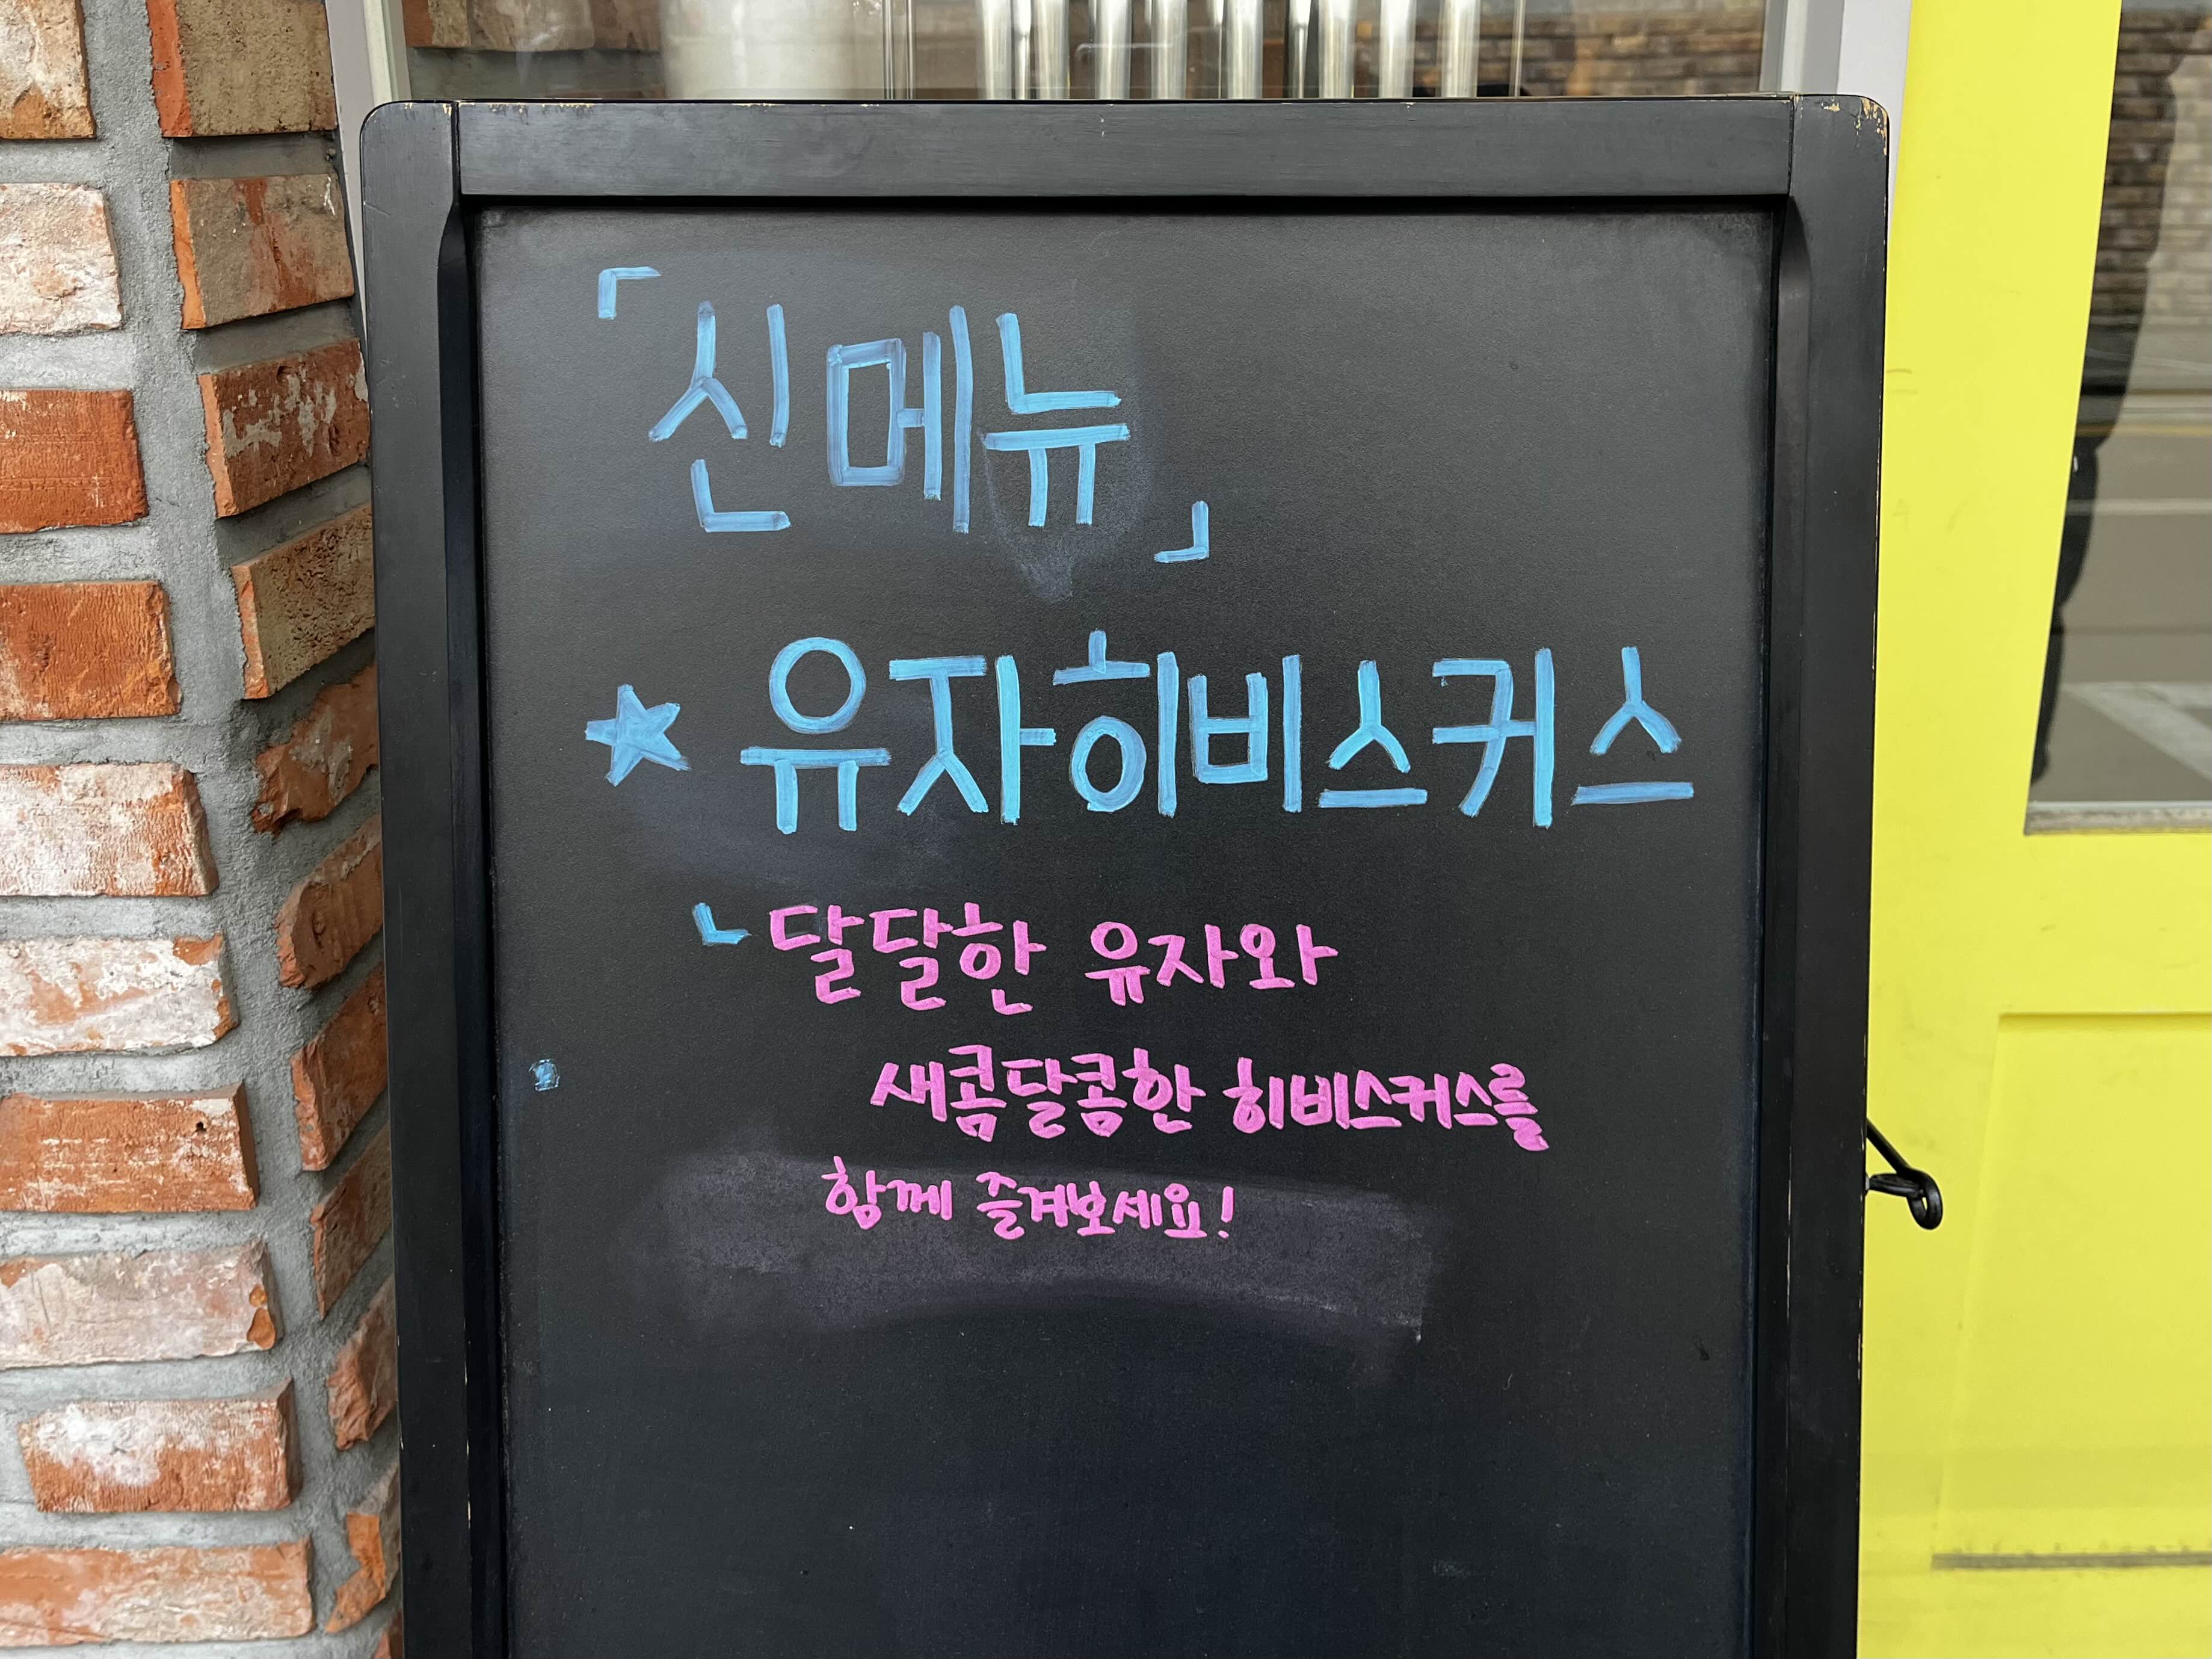 「신메뉴」
★ 유자히비스커스
ㄴ달달한 유자와
새콤달콤한 히비스커스를
함께 즐겨보세요!